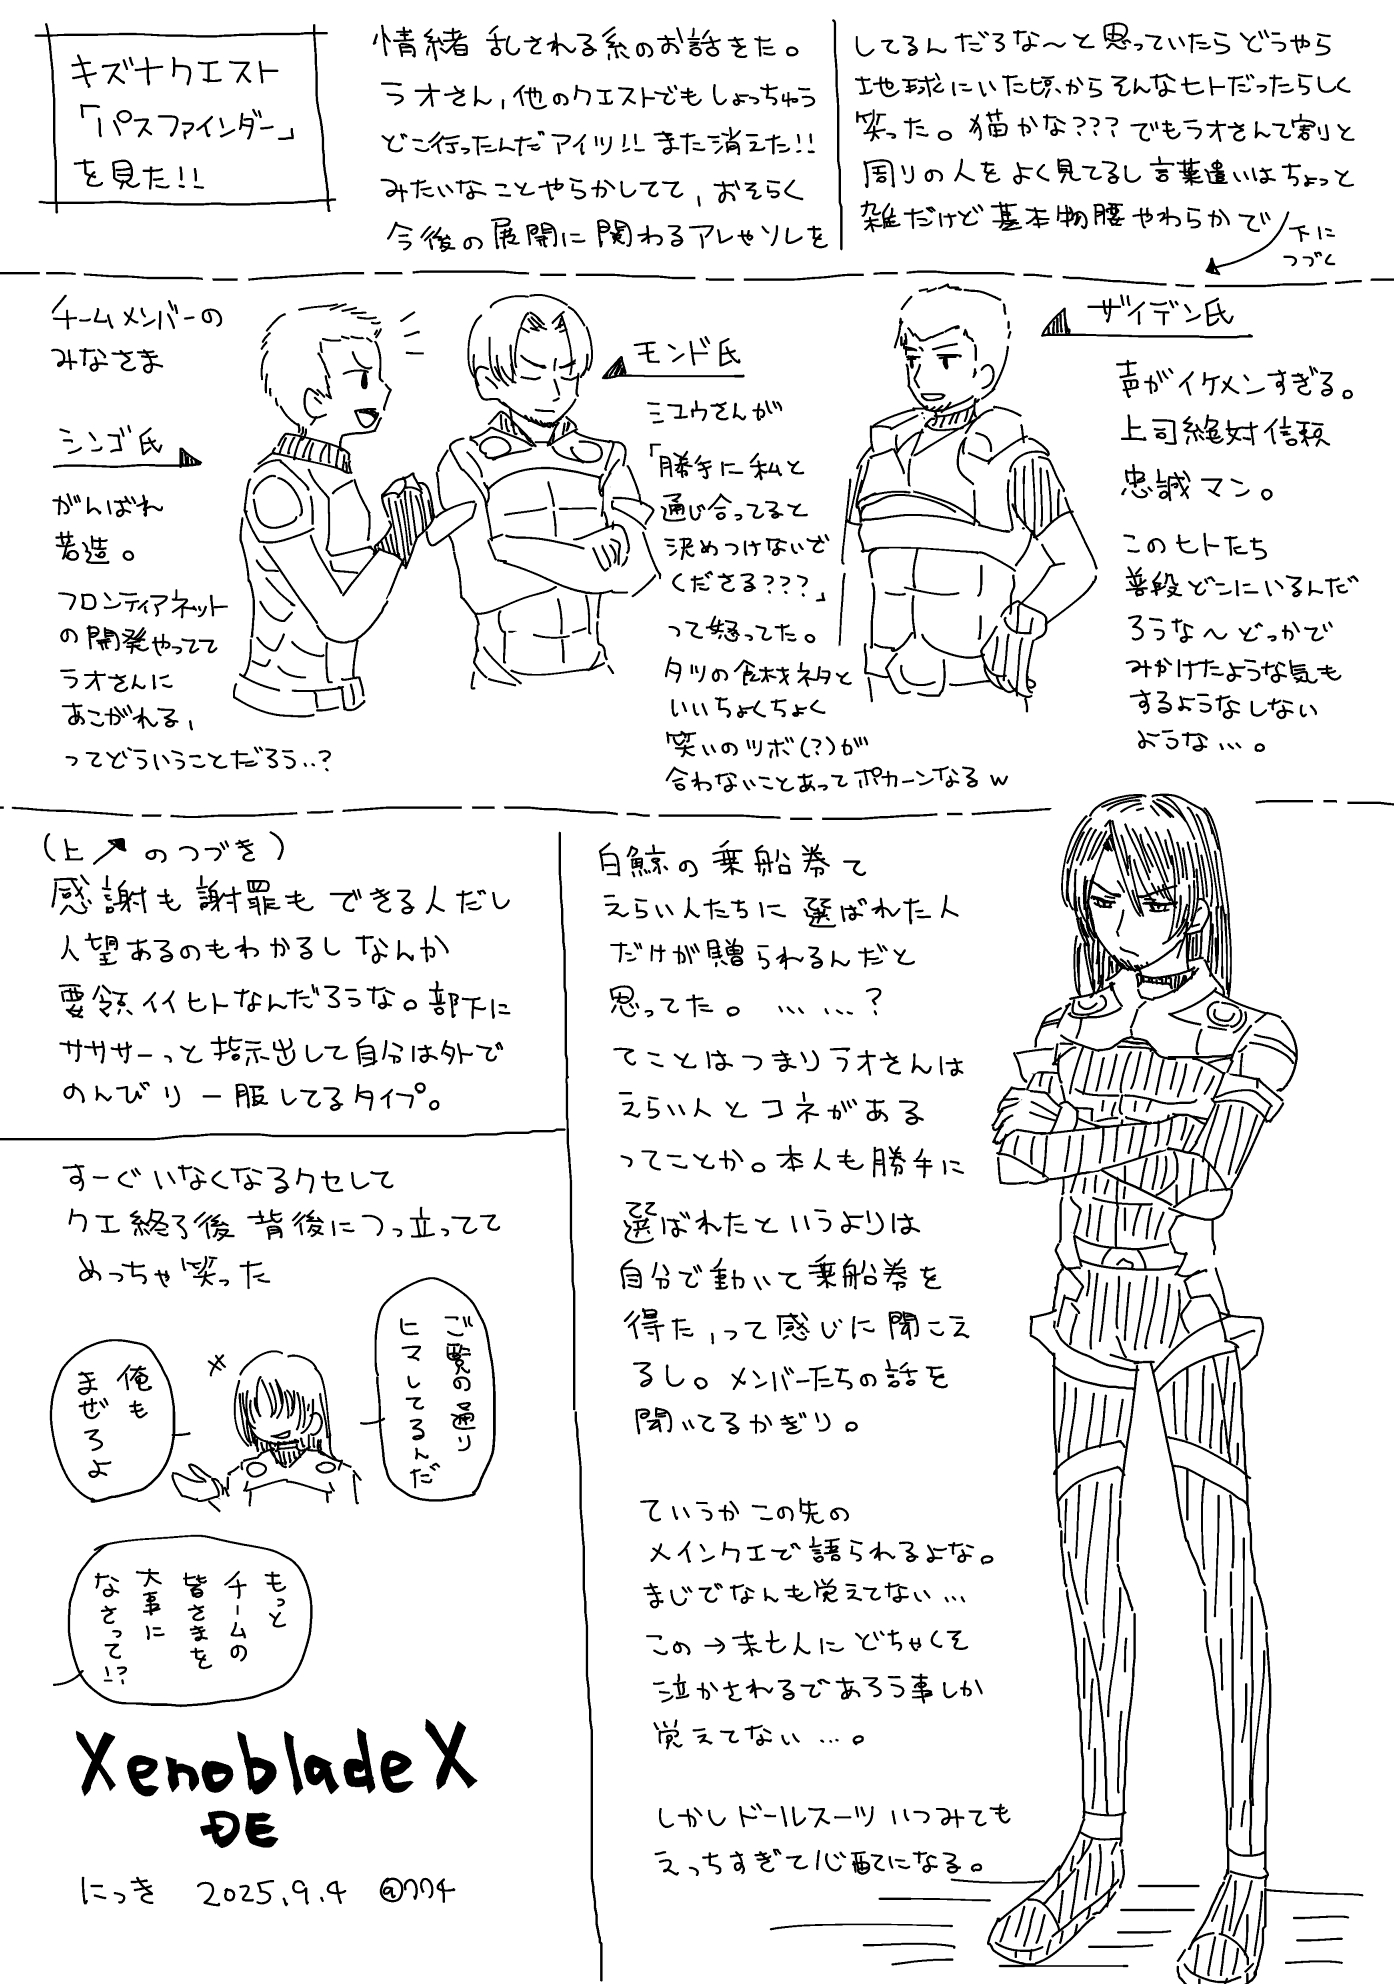 キズナクエスト
「パスファインダー」
を見た!!
情緒 乱される系のお話きた。
ラオさん、他のクエストでもしょっちゅう
どこ行ったんだアイツ!! また消えた!!
みたいなことやらかしてて、おそらく
今後の展開に関わるアレやソレを
してるんだろな〜と思っていたらどうやら
地球にいた頃からそんなヒトだったらしく
笑った。猫かな???でもラオさんて割と
周りの人をよく見てるし言葉遣いはちょっと
雑だけど基本物腰やわらかで
下に
つづく
チームメンバーの
みなさま
シンゴ氏
がんばれ
若造。
フロンティアネット
の開発やってて
ラオさんに
あこがれる、
ってどういうことだろう..?
モンド氏
ミユウさんが
「勝手に私と
通じ合ってると
決めつけないで
くださる???」
って怒ってた。
タツの食材ネタと
いいちょくちょく
笑いのツボ(?)が
合わないことあってポカーンなるw
ザイデン氏
声がイケメンすぎる。
上司絶対信頼
忠誠マン。
このヒトたち
普段どこにいるんだ
ろうな〜どっかで
みかけたような気も
するようなしない
ような…。
(上↗のつづき)
感謝も謝罪もできる人だし
人望あるのもわかるしなんか
要領イイヒトなんだろうな。部下に
サササーっと指示出して自分は外で
のんびり一服してるタイプ。
すーぐいなくなるクセして
クエ終了後 背後につっ立ってて
めっちゃ笑った
ご覧の通り
ヒマしてるんだ
俺も
まぜろよ
もっと
チームの
皆さまを
大事に
なさって!?
XenobladeX
DE
にっき 2025.9.4 @777
白鯨の乗船券て
えらい人たちに選ばれた人
だけが贈られるんだと
思ってた。……?
てことはつまりラオさんは
えらい人とコネがある
ってことか。本人も勝手に
選ばれたというよりは
自分で動いて乗船券を
得た、って感じに聞こえ
るし。メンバーたちの話を
聞いてるかぎり。
ていうかこの先の
メインクエで語られるよな。
まじでなんも覚えてない…
この→未亡人にどちゃくそ
泣かされるであろう事しか
覚えてない…。
しかしドールスーツいつみても
えっちすぎて心配になる。